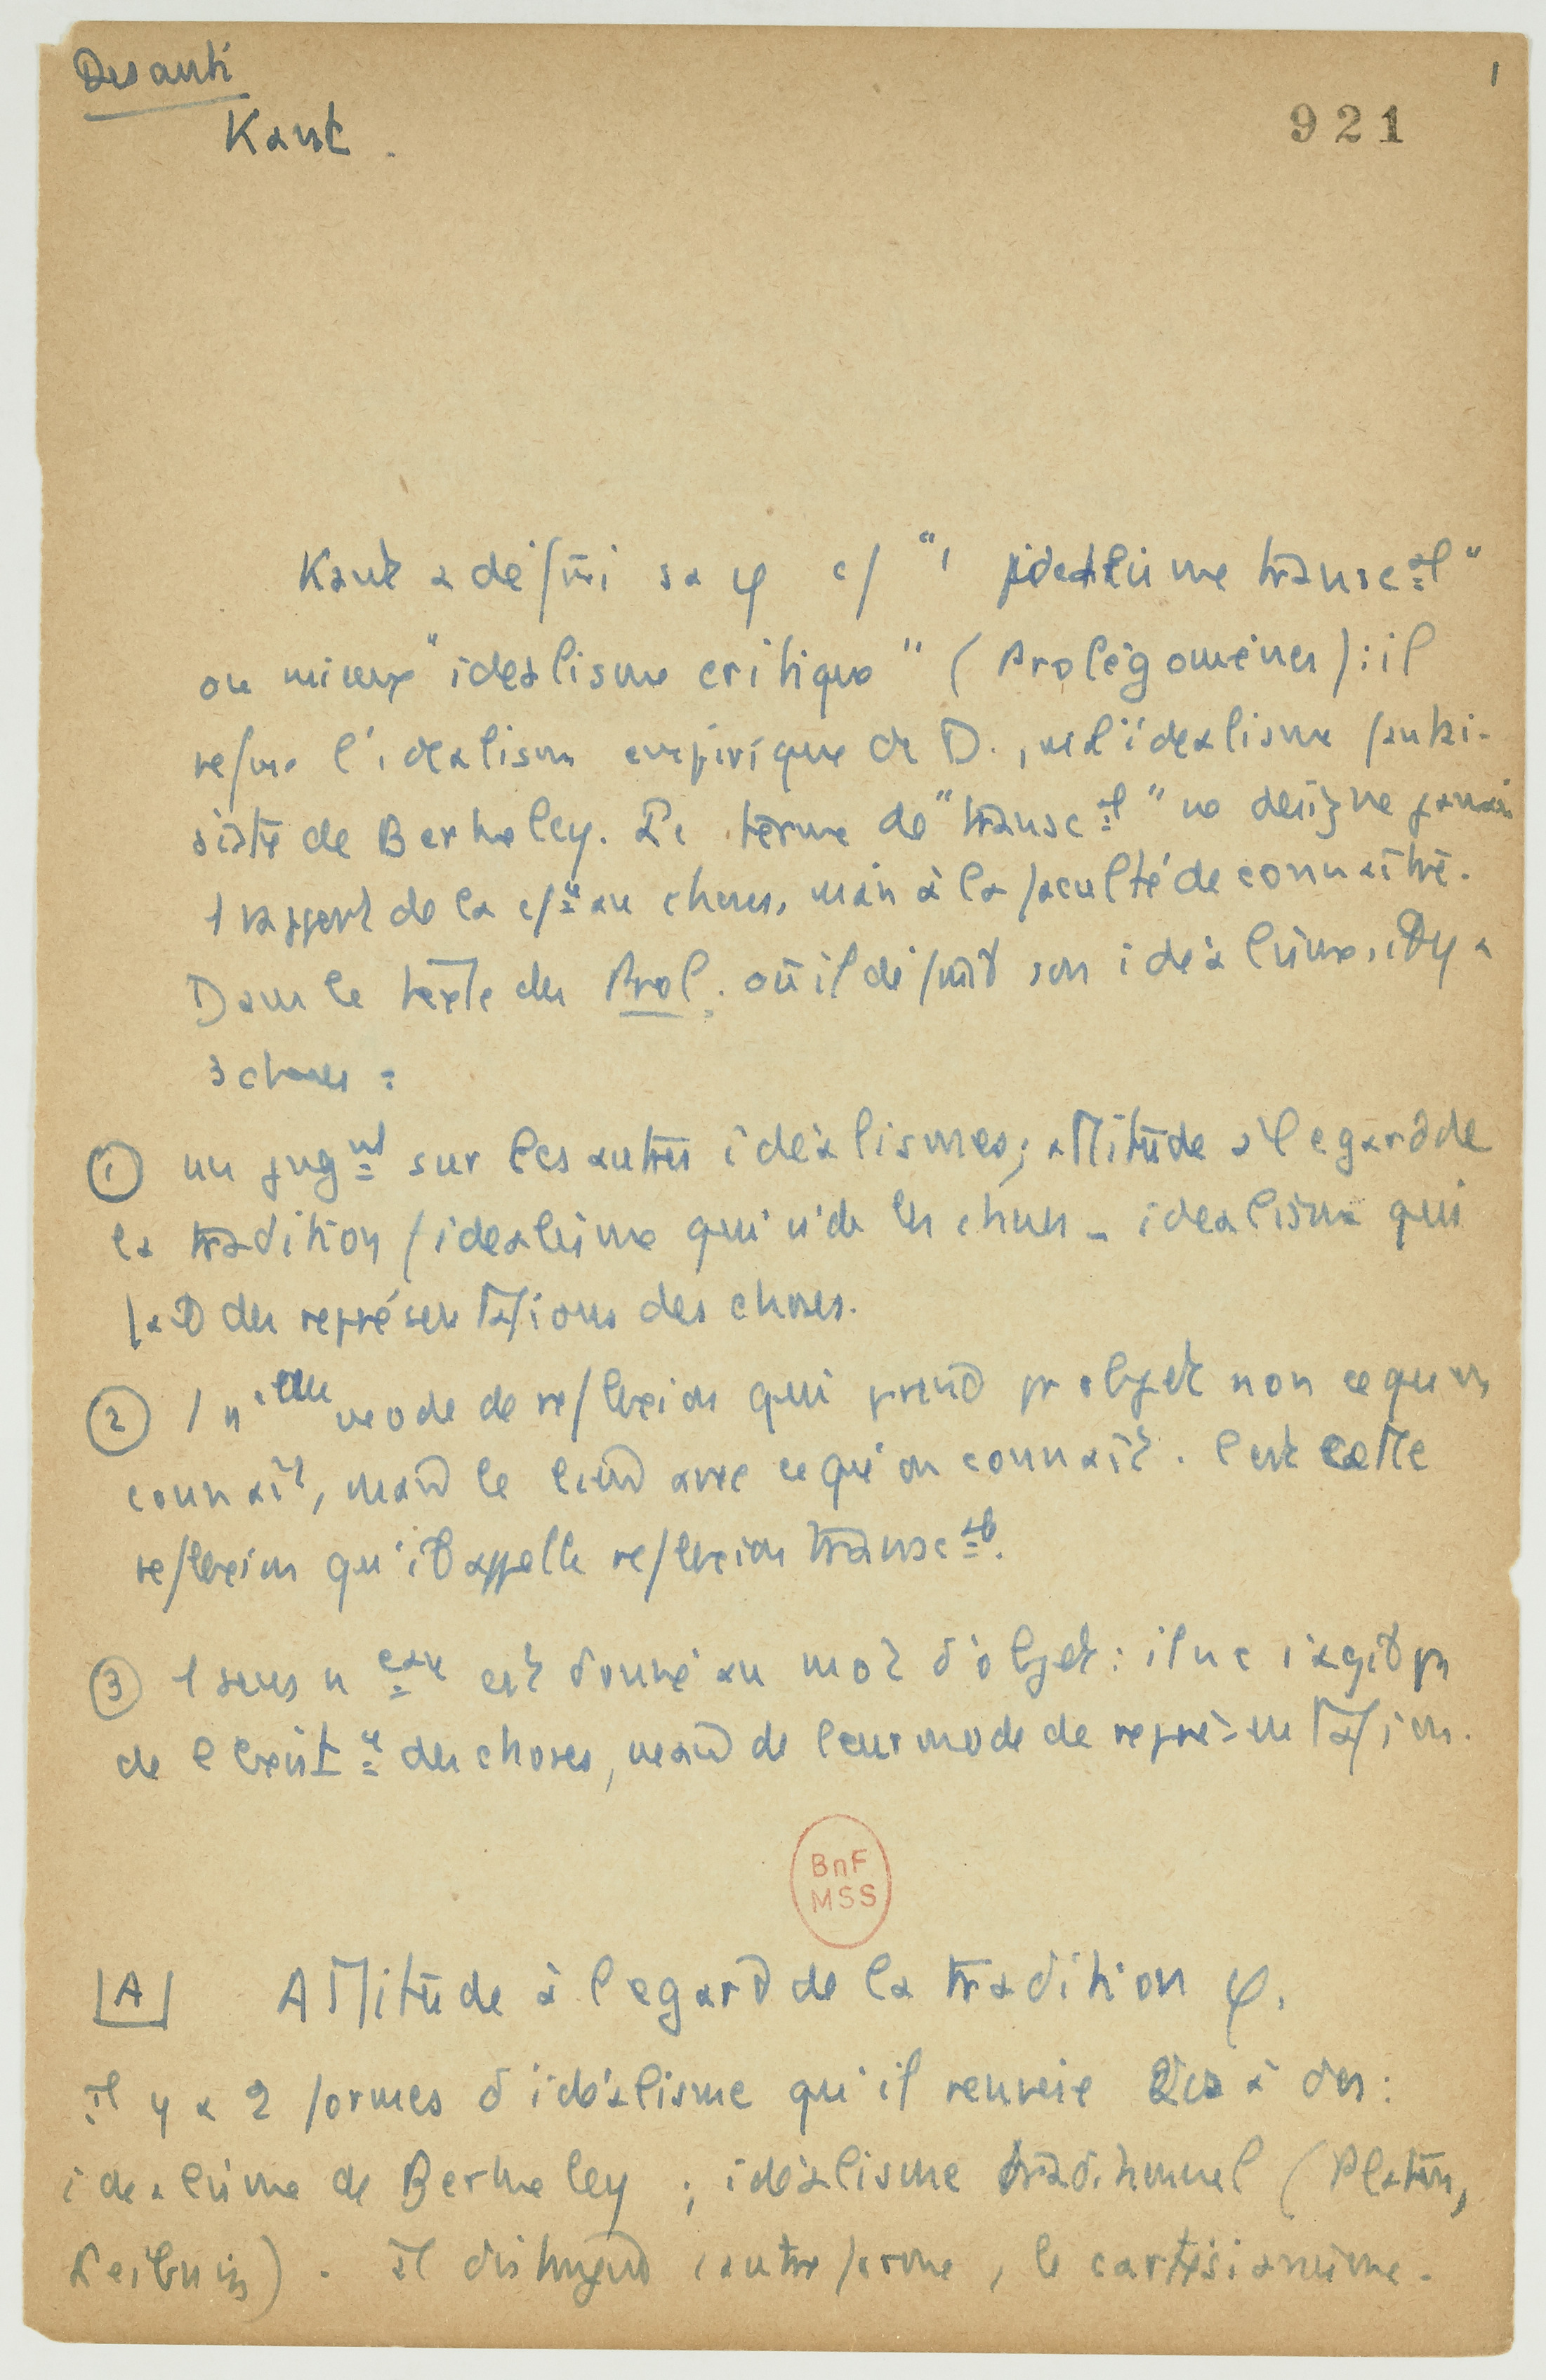 Desanti
1
Kant.
921
Kant a défini sa φ c/ "l'idealisme transc al"
ou mieux "idealisme critique" (Prolégomènes): il
refuse l'idealism empirique de D., et l'idealisme fantai-
siste de Berkeley. Le terme de "transc al" ne designe jamais
1 rapport de la c/ce aux choses, mais à la faculté de connaître.
Dans le texte des Prol. où il définit son idéalisme, il y a
3 choses :
① un jug nt sur les autres idéalismes; attitude à l'egard de
la tradition (idealisme qui vide les choses - idealisme qui
fait des représentations des choses.
② 1 n elle mode de reflexion qui prend pr objet non ce qu'on
connait, mais le lien avec ce qu'on connait. C'est cette
reflexion qu'il appelle reflexion transc ale.
③ 1 sens n eau est donné au mot d'objet: il ne s'agit pas
de l'exist ce des choses, mais de leur mode de représentation.
BnF
MSS
A Attitude à l'egard de la tradition φ.
Il y a 2 formes d'idéalisme qu'il renvoie dos à dos:
idealisme de Berkeley ; idéalisme traditionnel (Platon,
Leibniz). Il distingue 1 autre forme, le cartésianisme.